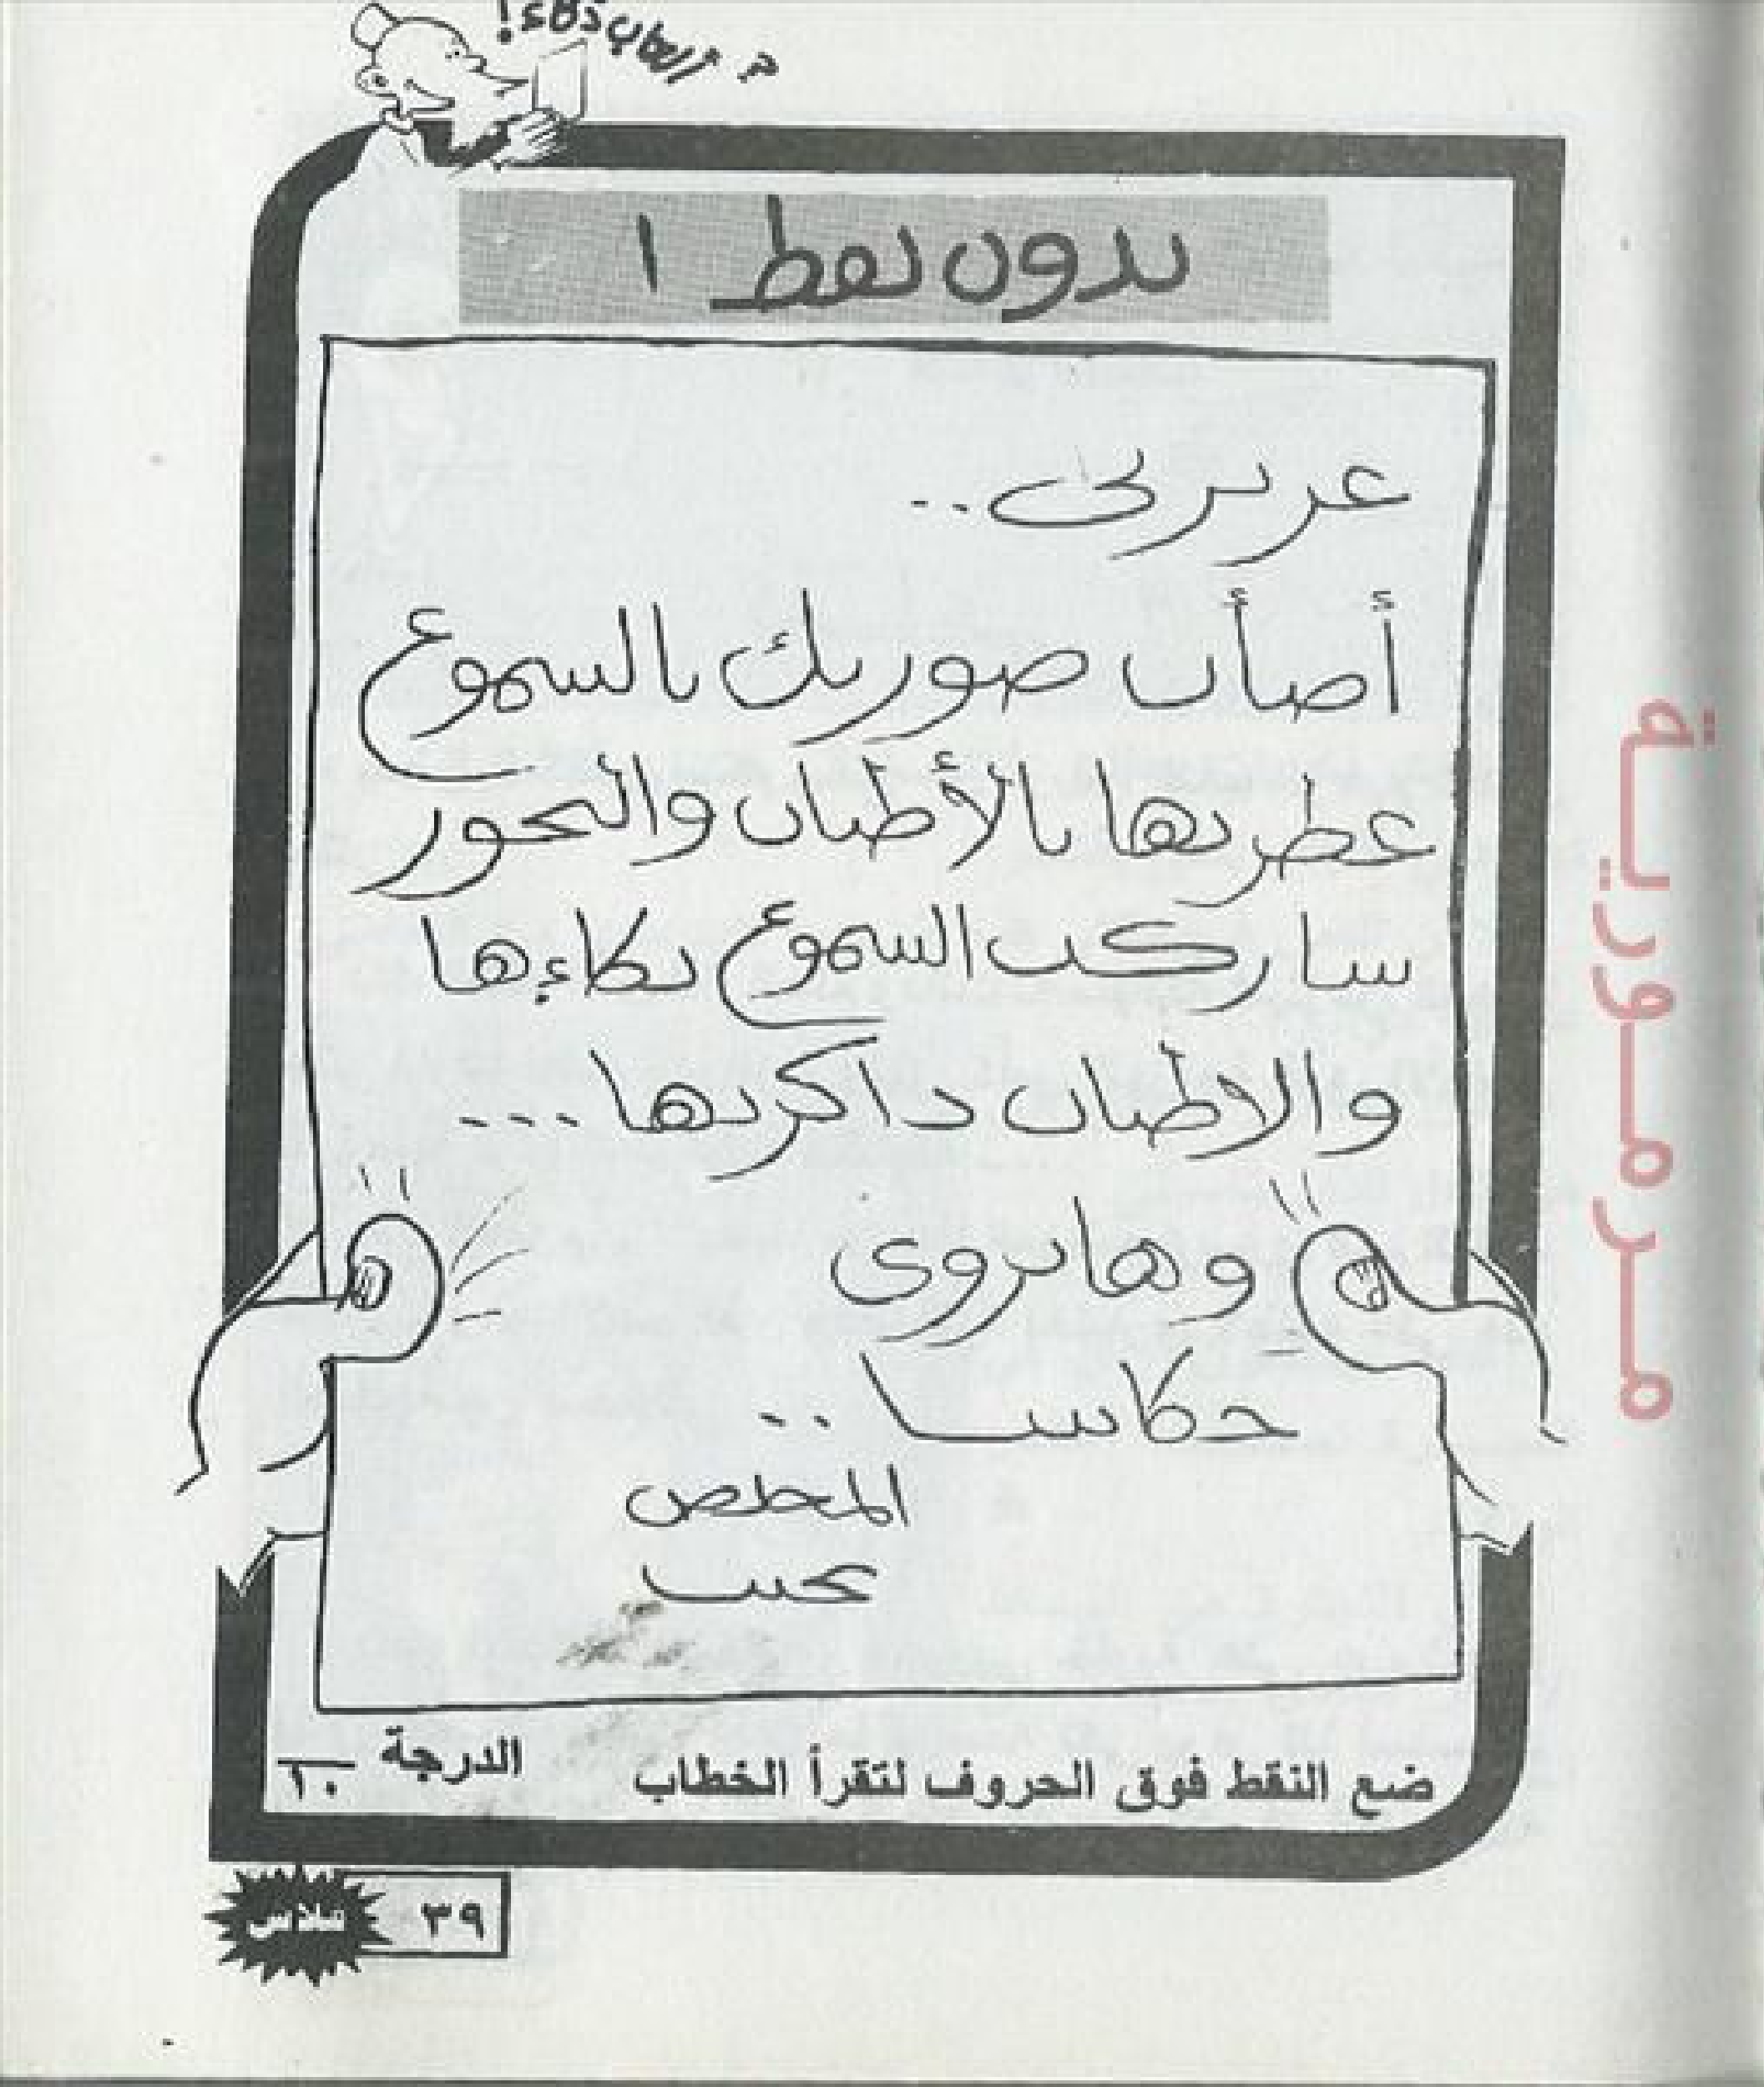 ألعاب ذكاء!
ٮدوں ٮڡط ١
عرٮرٮى..
أصأٮ صورٮك ٮالسموع
عطرٮها ٮالأطٮاٮ والٮحور
ساركٮ السموع ٮكاءها
والاطٮاٮ داكرٮها...
وها ٮروى
حكاٮٮٮا ..
المحلص
محٮٮ
ضع النقط فوق الحروف لتقرأ الخطاب
الدرجة ١٠
٣٩
مرمورية